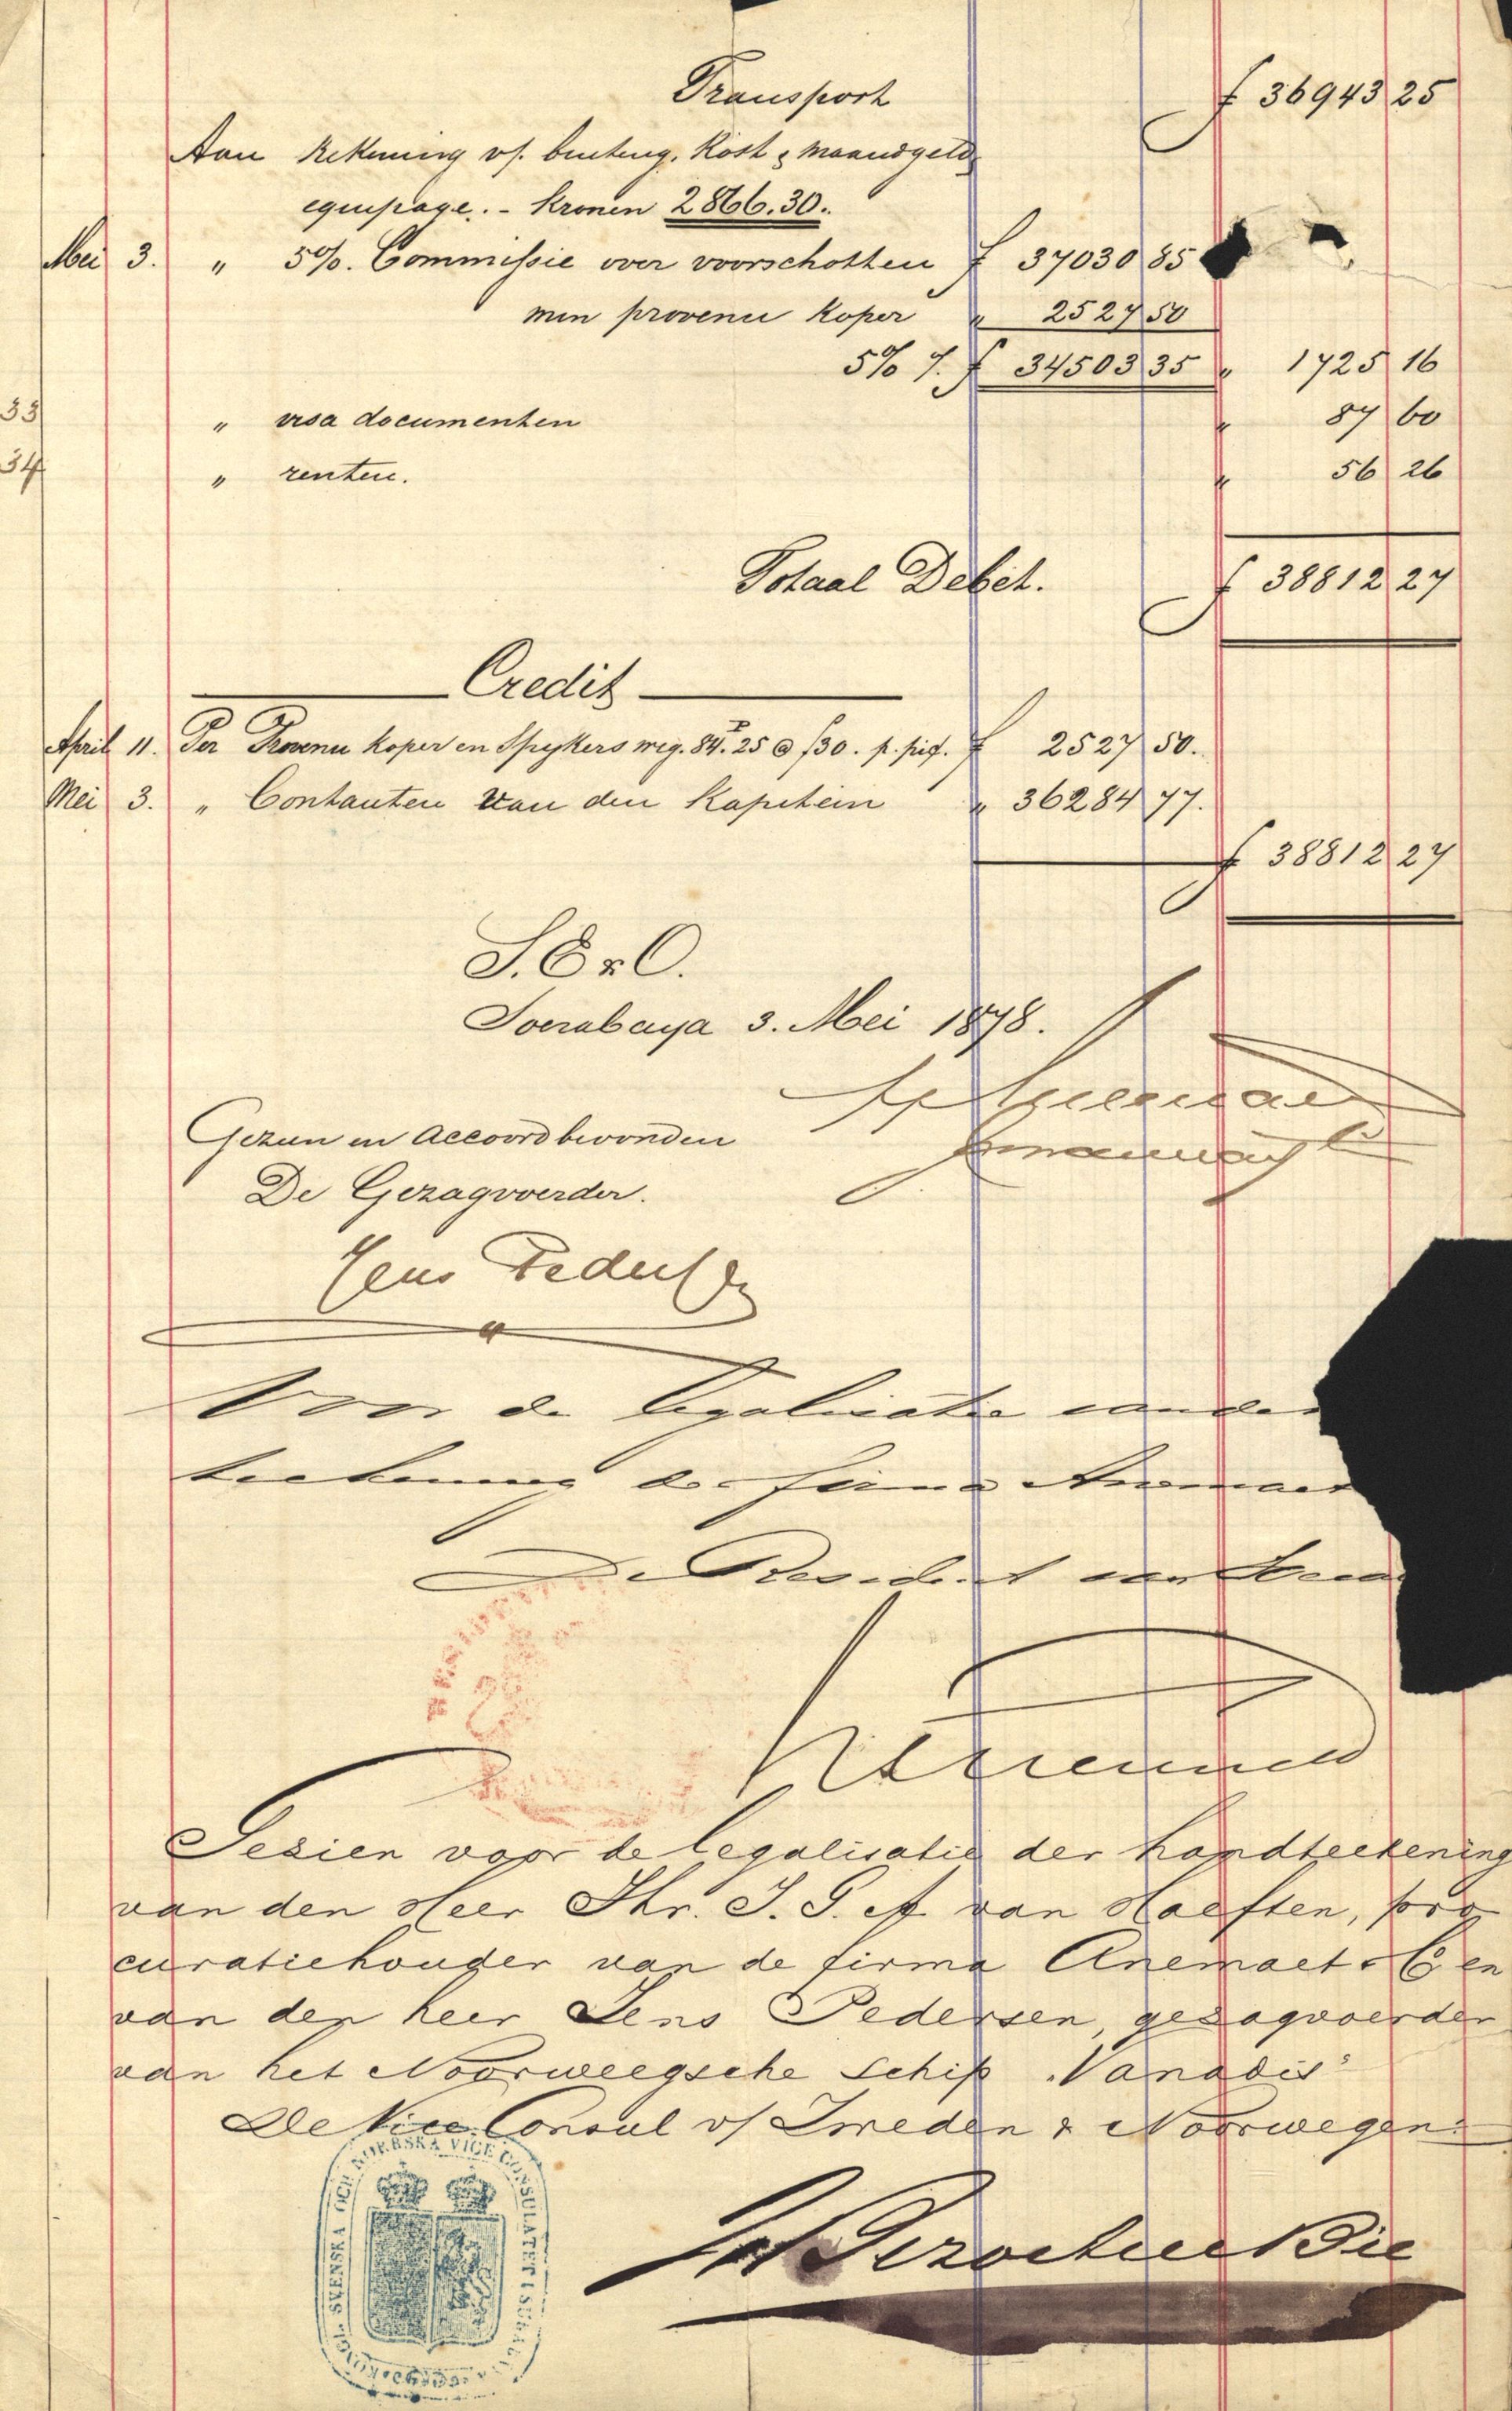 Transport f 36943 25
Aan Rekening v/. Kost & Maandgeld
equipage. - Kronen 2866.30.
Mei 3. " 5%. Commissie over voorschotten f 37030 85
min provenu Koper " 2527 50
5% %. f 34503 35 " 1725 16
33 " visa documenten " 87 60
34 " renten. " 56 26
Totaal Debet. f 38812 27
Credit
April 11. Per Provenu Koper en Spykers weg. 84. P 25 @ f30. p. pic. f 2527 50.
Mei 3. " Contanten van den Kapitein " 36284 77.
f 38812 27
S.E & O.
Soerabaya 3. Mei 1878.
Gezien en Accoord bevonden
De Gezagvoerder.
Jens Pedersen
Voor de legalisatie van de
teekening der firma Anemaet
De Resident van
Gezien voor de legalisatie der handteekening
van den Heer Jhr. J. G. A. van Haeften, pro
curatiehouder van de firma Anemaet & Co en
van den heer Jens Pedersen, gezagvoerder
van het Noorweegsche schip "Vanadis"
De Vice Consul v/ Zweden & Noorwegen.
KONGL. SVENSKA OCH NORRSKA VICE CONSULATET I SURABAYA